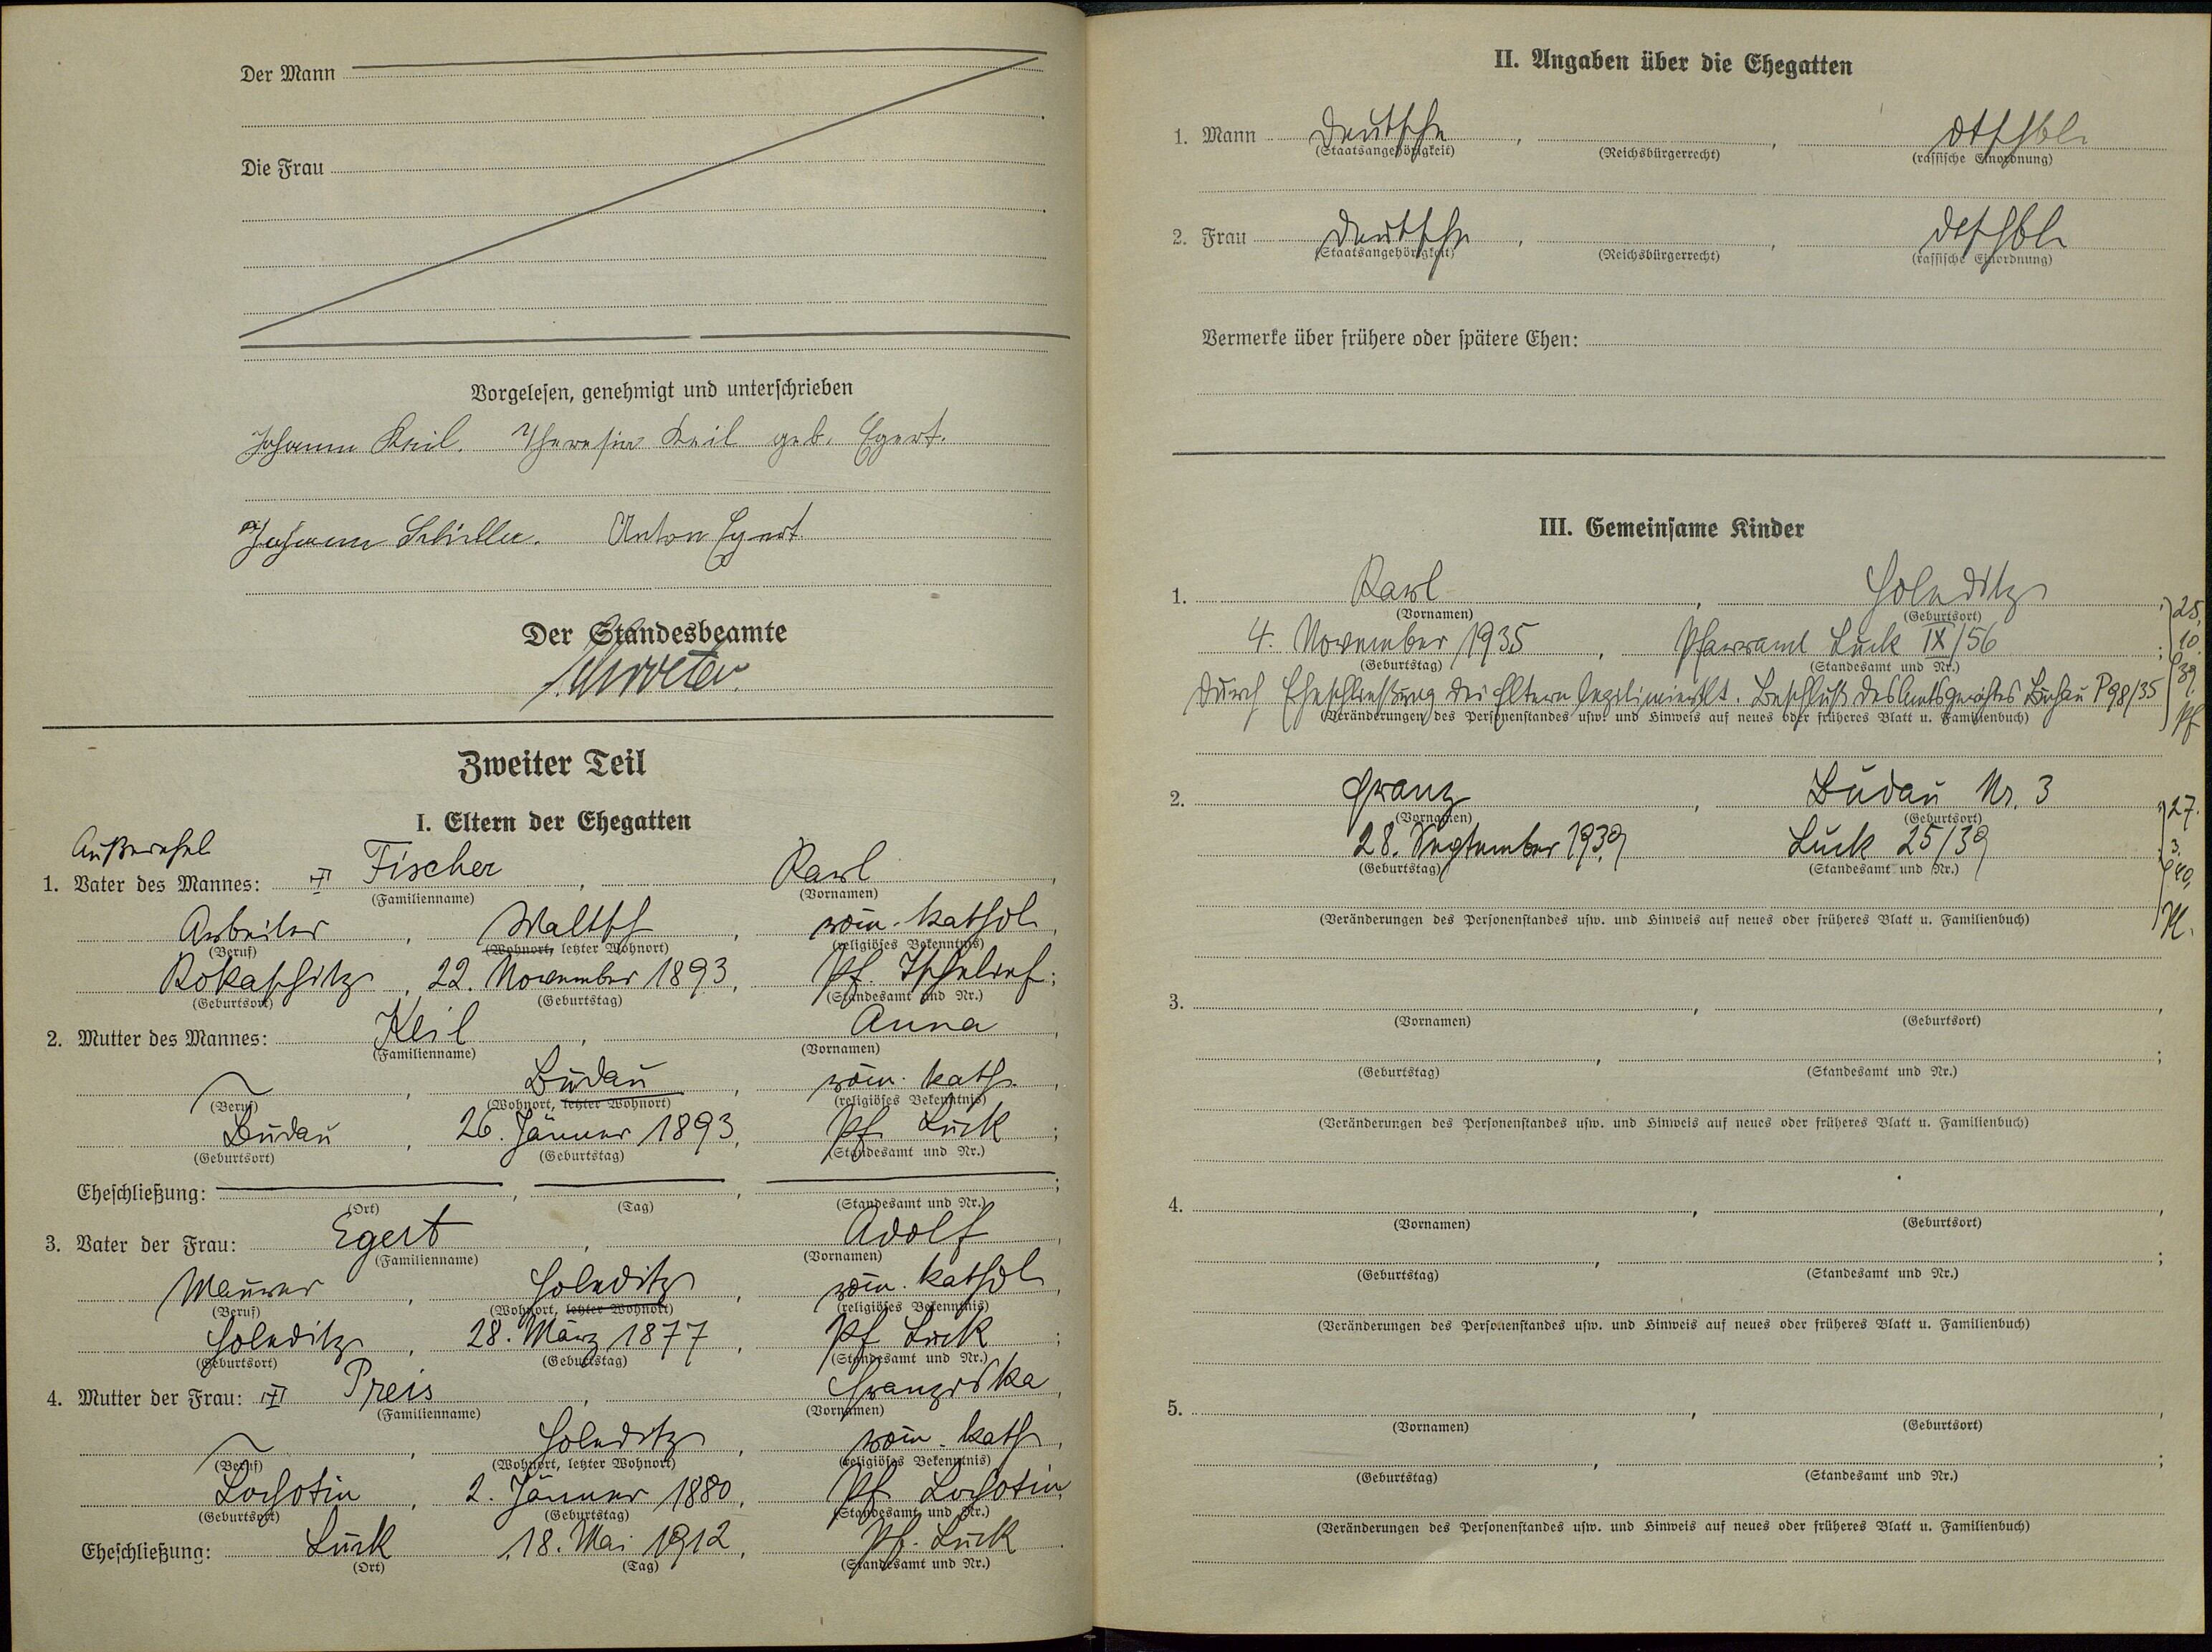 Der Mann
Die Frau
Vorgelesen, genehmigt und unterschrieben
Johann Keil. Theresia Keil geb. Egert.
Johann Schiller. Anton Egert.
Der Standesbeamte
Zweiter Teil
I. Eltern der Ehegatten
Außerehel.
1. Vater des Mannes: Fischer, Karl,
(Familienname) (Vornamen)
Arbeiter, Waltsch, röm. kathol.,
(Beruf) (Wohnort, letzter Wohnort) (religiöses Bekenntnis)
Rokaschitz, 22. November 1893, Pf.
(Geburtsort) (Geburtstag) (Standesamt und Nr.)
2. Mutter des Mannes: Keil, Anna,
(Familienname) (Vornamen)
Budau, röm. kath.,
(Beruf) (Wohnort, letzter Wohnort) (religiöses Bekenntnis)
Budau, 26. Jänner 1893, Pf. Luck;
(Geburtsort) (Geburtstag) (Standesamt und Nr.)
Eheschließung:
(Ort) (Tag) (Standesamt und Nr.)
3. Vater der Frau: Egert, Adolf,
(Familienname) (Vornamen)
Maurer, Holeditz, röm. kathol.,
(Beruf) (Wohnort, letzter Wohnort) (religiöses Bekenntnis)
Holeditz, 28. März 1877, Pf. Luck;
(Geburtsort) (Geburtstag) (Standesamt und Nr.)
4. Mutter der Frau: Preis, Franziska,
(Familienname) (Vornamen)
Holeditz, röm. kath.,
(Beruf) (Wohnort, letzter Wohnort) (religiöses Bekenntnis)
Lochotin, 2. Jänner 1880, Pf. Lochotin;
(Geburtsort) (Geburtstag) (Standesamt und Nr.)
Eheschließung: Luck, 18. Mai 1912, Pf. Luck.
(Ort) (Tag) (Standesamt und Nr.)
II. Angaben über die Ehegatten
1. Mann Deutsche, , dtschbl.
(Staatsangehörigkeit) (Reichsbürgerrecht) (rassische Einordnung)
2. Frau Deutsche, , dtschbl.
(Staatsangehörigkeit) (Reichsbürgerrecht) (rassische Einordnung)
Vermerke über frühere oder spätere Ehen:
III. Gemeinsame Kinder
1. Karl, Holeditz, 25.
(Vornamen) (Geburtsort)
4. November 1935, Pfarramt Luck IX/56; 10.
(Geburtstag) (Standesamt und Nr.)
durch Eheschließung der Eltern legitimiert lt. Beschluß des Amtsgerichtes Buchau P 98/35 39.
(Veränderungen des Personenstandes usw. und Hinweis auf neues oder früheres Blatt u. Familienbuch)
2. Franz, Budau Nr. 3, 27.
(Vornamen) (Geburtsort)
28. September 1939, Luck 25/39; 3.
(Geburtstag) (Standesamt und Nr.) 40.
(Veränderungen des Personenstandes usw. und Hinweis auf neues oder früheres Blatt u. Familienbuch)
3.
(Vornamen) (Geburtsort)
(Geburtstag) (Standesamt und Nr.)
(Veränderungen des Personenstandes usw. und Hinweis auf neues oder früheres Blatt u. Familienbuch)
4.
(Vornamen) (Geburtsort)
(Geburtstag) (Standesamt und Nr.)
(Veränderungen des Personenstandes usw. und Hinweis auf neues oder früheres Blatt u. Familienbuch)
5.
(Vornamen) (Geburtsort)
(Geburtstag) (Standesamt und Nr.)
(Veränderungen des Personenstandes usw. und Hinweis auf neues oder früheres Blatt u. Familienbuch)